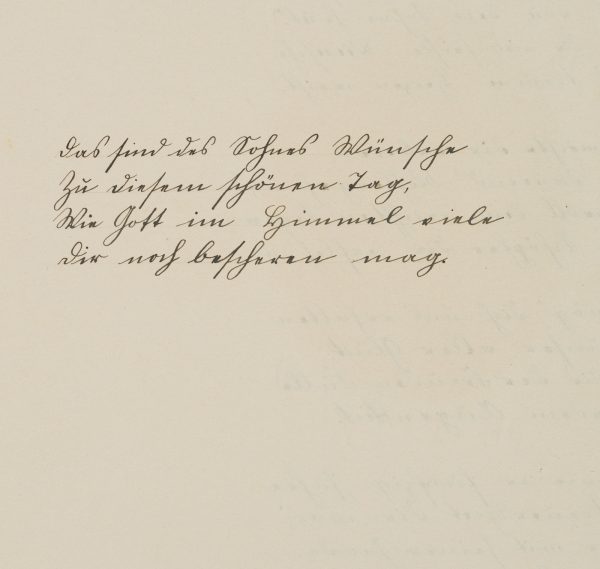 Das sind des Sohnes Wünsche
Zu diesem schönen Tag,
Wie Gott im Himmel viele
Dir noch bescheren mag.